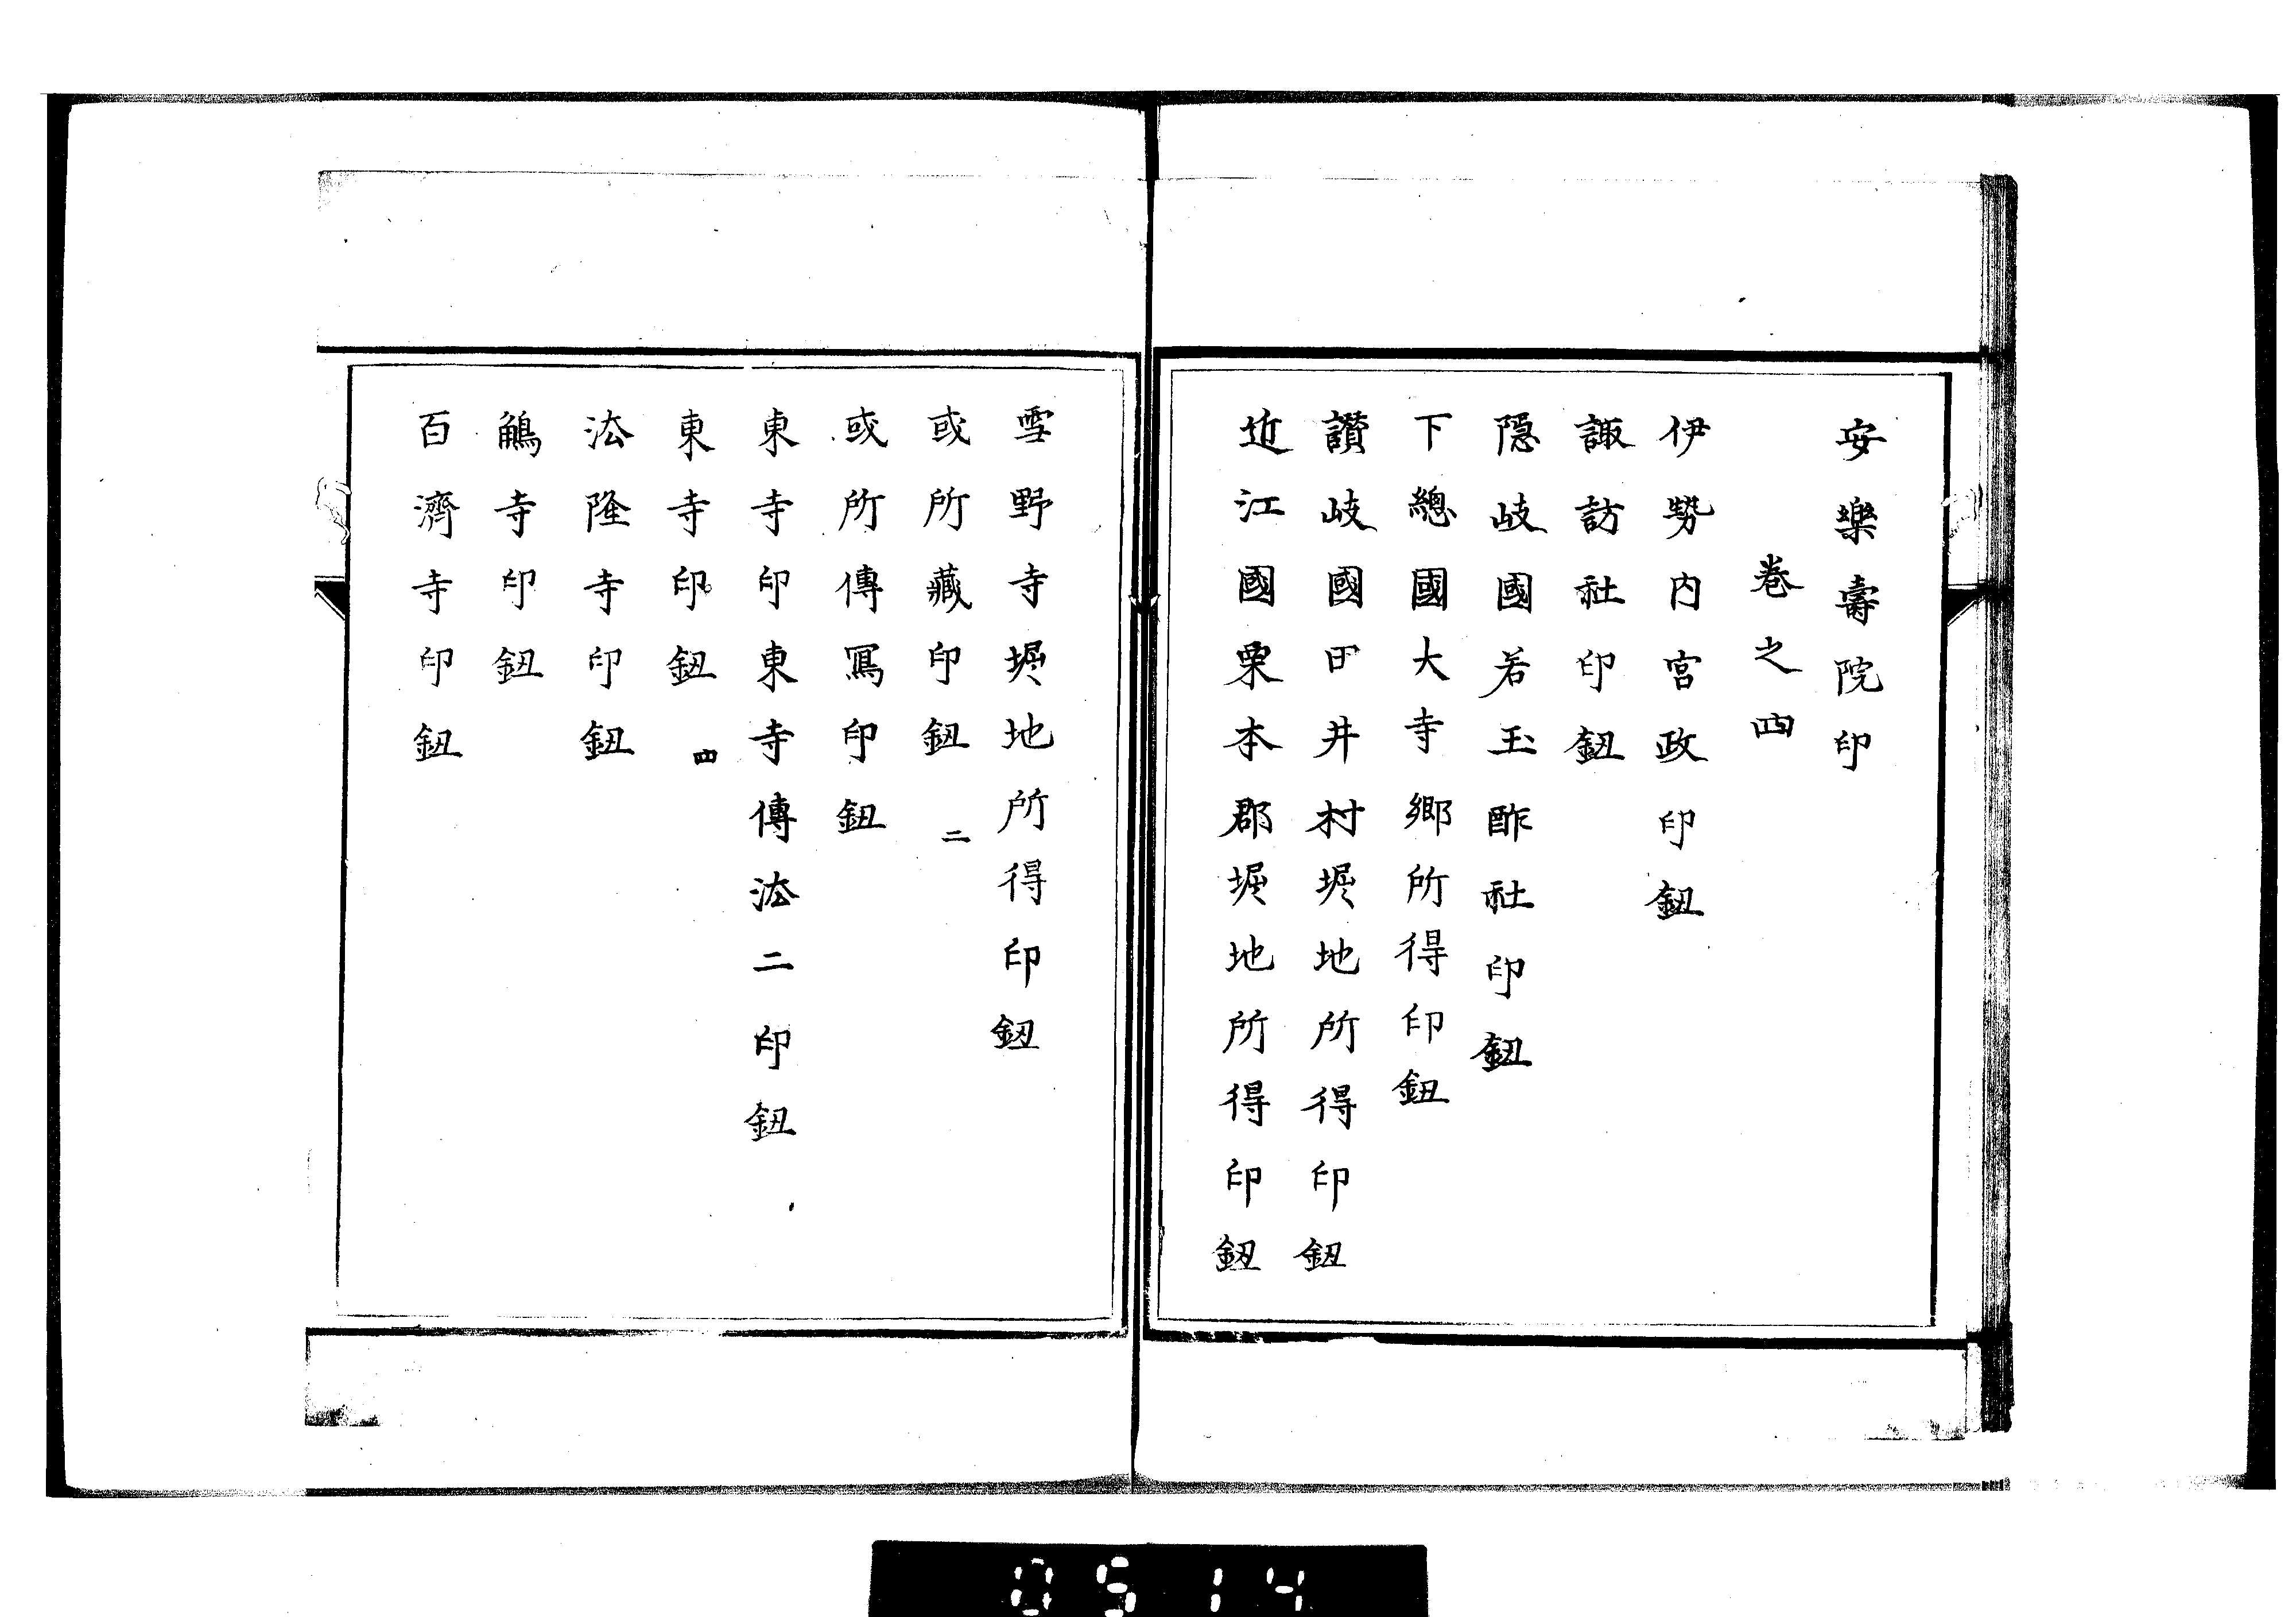 安樂壽院印
卷之四
伊勢內宮政印鈕
諏訪社印鈕
隱岐國若玉酢社印鈕
下總國大寺鄉所得印鈕
讃岐國田井村堀地所得印鈕
近江國栗本郡堀地所得印鈕
雪野寺堀地所得印鈕
或所藏印鈕 二
或所傳寫印鈕
東寺印東寺傳法二印鈕
東寺印鈕 四
法隆寺印鈕
鵤寺印鈕
百濟寺印鈕
0514